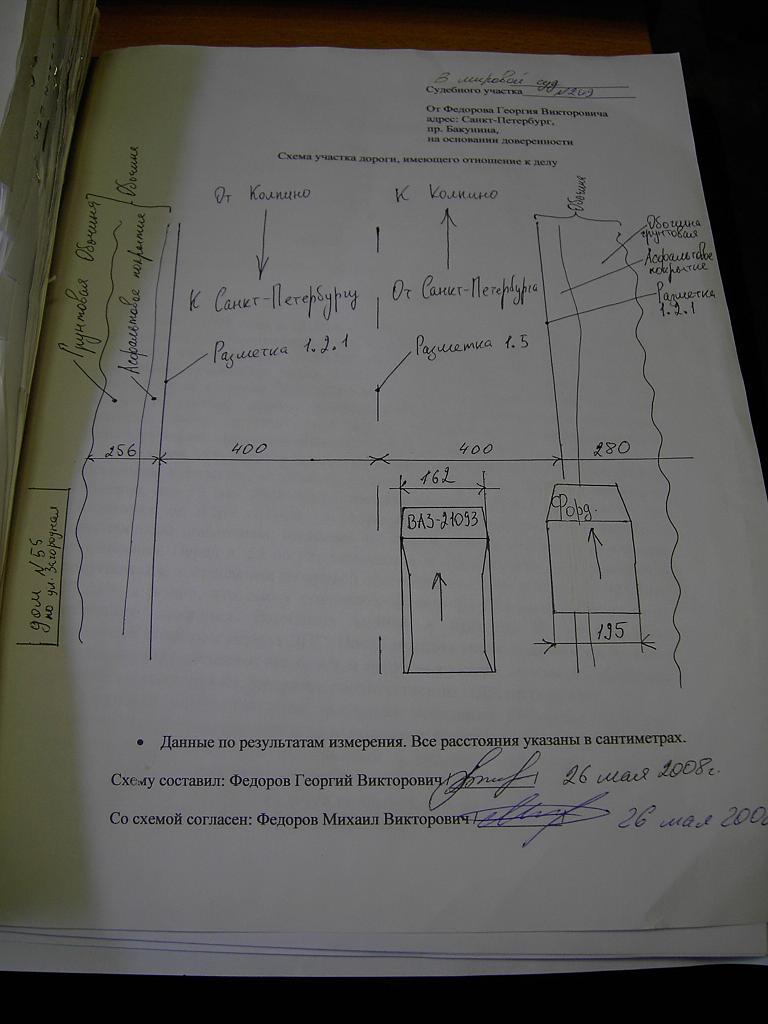 В мировой суд
Судебного участка №209
От Федорова Георгия Викторовича
адрес: Санкт-Петербург,
пр. Бакунина,
на основании доверенности
Схема участка дороги, имеющего отношение к делу
Грунтовая Обочина
Асфальтовое покрытие
Обочина
От Колпино
К Санкт-Петербургу
Разметка 1.2.1
К Колпино
От Санкт-Петербурга
Разметка 1.5
Обочина
Обочина
грунтовая
Асфальтовое
покрытие
Разметка
1.2.1
256
400
400
280
162
ВАЗ-21093
Форд.
195
дом №55
по ул. Загородная
• Данные по результатам измерения. Все расстояния указаны в сантиметрах.
Схему составил: Федоров Георгий Викторович 26 мая 2008г.
Со схемой согласен: Федоров Михаил Викторович 26 мая 200